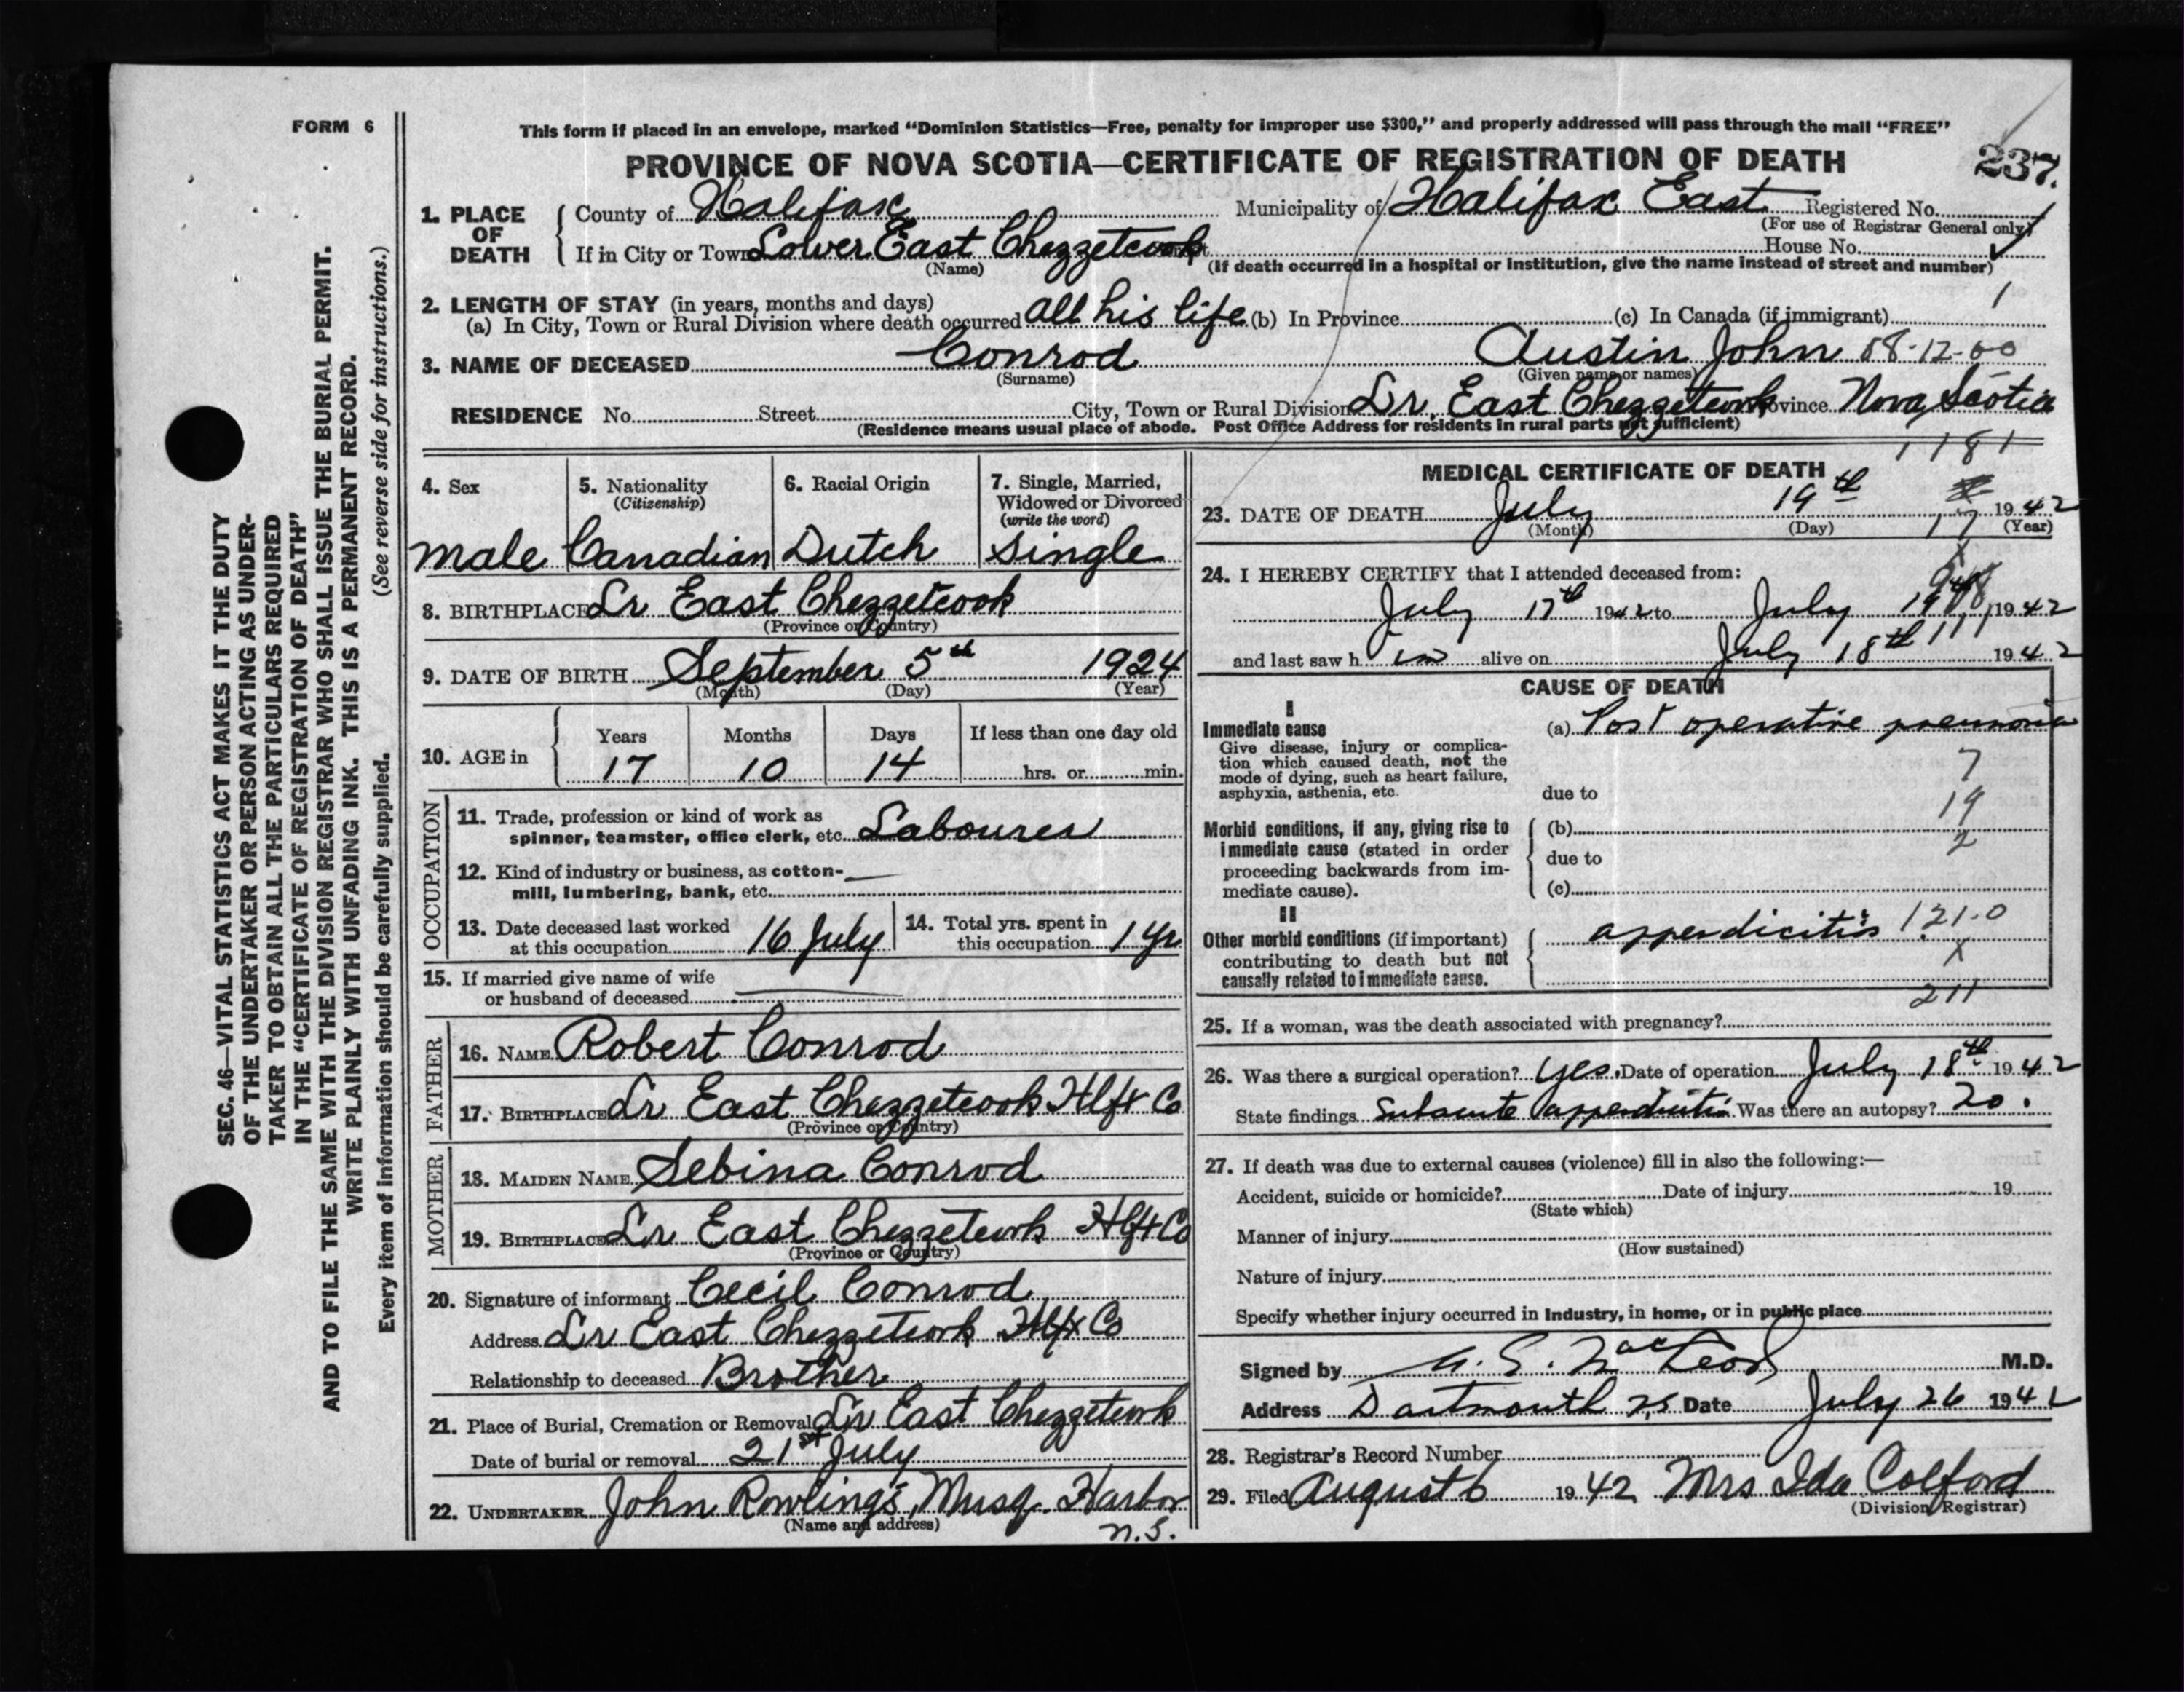 FORM 6
This form if placed in an envelope, marked "Dominion Statistics—Free, penalty for improper use $300," and properly addressed will pass through the mail "FREE"
PROVINCE OF NOVA SCOTIA—CERTIFICATE OF REGISTRATION OF DEATH
237.
1. PLACE OF DEATH
County of Halifax Municipality of Halifax East Registered No.
(For use of Registrar General only)
If in City or Town Lower East Chezzetcook House No.
(Name) (If death occurred in a hospital or institution, give the name instead of street and number)
2. LENGTH OF STAY (in years, months and days) 1
(a) In City, Town or Rural Division where death occurred all his life (b) In Province (c) In Canada (if immigrant)
3. NAME OF DECEASED Conrod Austin John 08-12-00
(Surname) (Given name or names)
RESIDENCE No. Street City, Town or Rural Division Lr. East Chezzetcook Province Nova Scotia
(Residence means usual place of abode. Post Office Address for residents in rural parts not sufficient)
1181
4. Sex 5. Nationality (Citizenship) 6. Racial Origin 7. Single, Married, Widowed or Divorced (write the word)
male Canadian Dutch Single
8. BIRTHPLACE Lr East Chezzetcook
(Province or Country)
9. DATE OF BIRTH September 5th 1924
(Month) (Day) (Year)
10. AGE in Years Months Days If less than one day old
17 10 14 hrs. or min.
OCCUPATION
11. Trade, profession or kind of work as
spinner, teamster, office clerk, etc. Labourer
12. Kind of industry or business, as cotton-
mill, lumbering, bank, etc.
13. Date deceased last worked
at this occupation 16 July
14. Total yrs. spent in
this occupation 1 yr
15. If married give name of wife
or husband of deceased
FATHER
16. NAME Robert Conrod
17. BIRTHPLACE Lr East Chezzetcook Hlfx Co
(Province or Country)
MOTHER
18. MAIDEN NAME Sebina Conrod
19. BIRTHPLACE Lr East Chezzetcook Hlfx Co
(Province or Country)
20. Signature of informant Cecil Conrod
Address Lr East Chezzetcook Hlfx Co
Relationship to deceased Brother
21. Place of Burial, Cremation or Removal Lr East Chezzetcook
Date of burial or removal 21st July
22. UNDERTAKER John Rowlings, Musq. Harbor
(Name and address) N.S.
MEDICAL CERTIFICATE OF DEATH
23. DATE OF DEATH July 19th 1942
(Month) (Day) 17 (Year)
24. I HEREBY CERTIFY that I attended deceased from:
July 17th 1942 to July 19th 1942
and last saw h im alive on July 18th 1942
CAUSE OF DEATH
I
Immediate cause (a) Post operative pneumonia
Give disease, injury or complica-
tion which caused death, not the
mode of dying, such as heart failure,
asphyxia, asthenia, etc.
7
due to
19
Morbid conditions, if any, giving rise to (b)
immediate cause (stated in order due to 2
proceeding backwards from im-
mediate cause). (c)
II
Other morbid conditions (if important) appendicitis 121.0
contributing to death but not X
causally related to immediate cause.
211
25. If a woman, was the death associated with pregnancy?
26. Was there a surgical operation? yes. Date of operation July 18th 1942
State findings Subacute appendicitis Was there an autopsy? no.
27. If death was due to external causes (violence) fill in also the following:—
Accident, suicide or homicide? Date of injury 19
(State which)
Manner of injury
(How sustained)
Nature of injury
Specify whether injury occurred in Industry, in home, or in public place
Signed by MacLeod M.D.
Address Dartmouth NS Date July 26 1942
28. Registrar's Record Number
29. Filed August 6 1942 Mrs Ida Colford
(Division Registrar)
SEC. 46—VITAL STATISTICS ACT MAKES IT THE DUTY
OF THE UNDERTAKER OR PERSON ACTING AS UNDER-
TAKER TO OBTAIN ALL THE PARTICULARS REQUIRED
IN THE "CERTIFICATE OF REGISTRATION OF DEATH"
AND TO FILE THE SAME WITH THE DIVISION REGISTRAR WHO SHALL ISSUE THE BURIAL PERMIT.
WRITE PLAINLY WITH UNFADING INK. THIS IS A PERMANENT RECORD.
Every item of information should be carefully supplied. (See reverse side for instructions.)